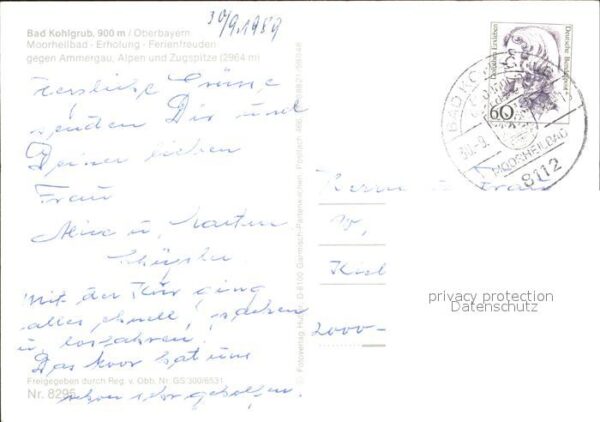 30/9.1989
Bad Kohlgrub, 900 m / Oberbayern
Moorheilbad - Erholung - Ferienfreuden
gegen Ammergau, Alpen und Zugspitze (2964 m)
Herzliche Grüße
senden Dir und
Deiner lieben
Frau
Mit der Kur ging
alles schnell, packen
u. losfahren.
Das Moor hat uns
schon sehr geholfen.
Freigegeben durch Reg. v. Obb. Nr. GS 300/6531
Nr. 8295
© Fotoverlag Huber D-8100 Garmisch-Partenkirchen, Postfach
Deutsche Bundespost
60
BAD KO
MOORHEILBAD
8112
Herrn u. Frau
2000-
privacy protection
Datenschutz